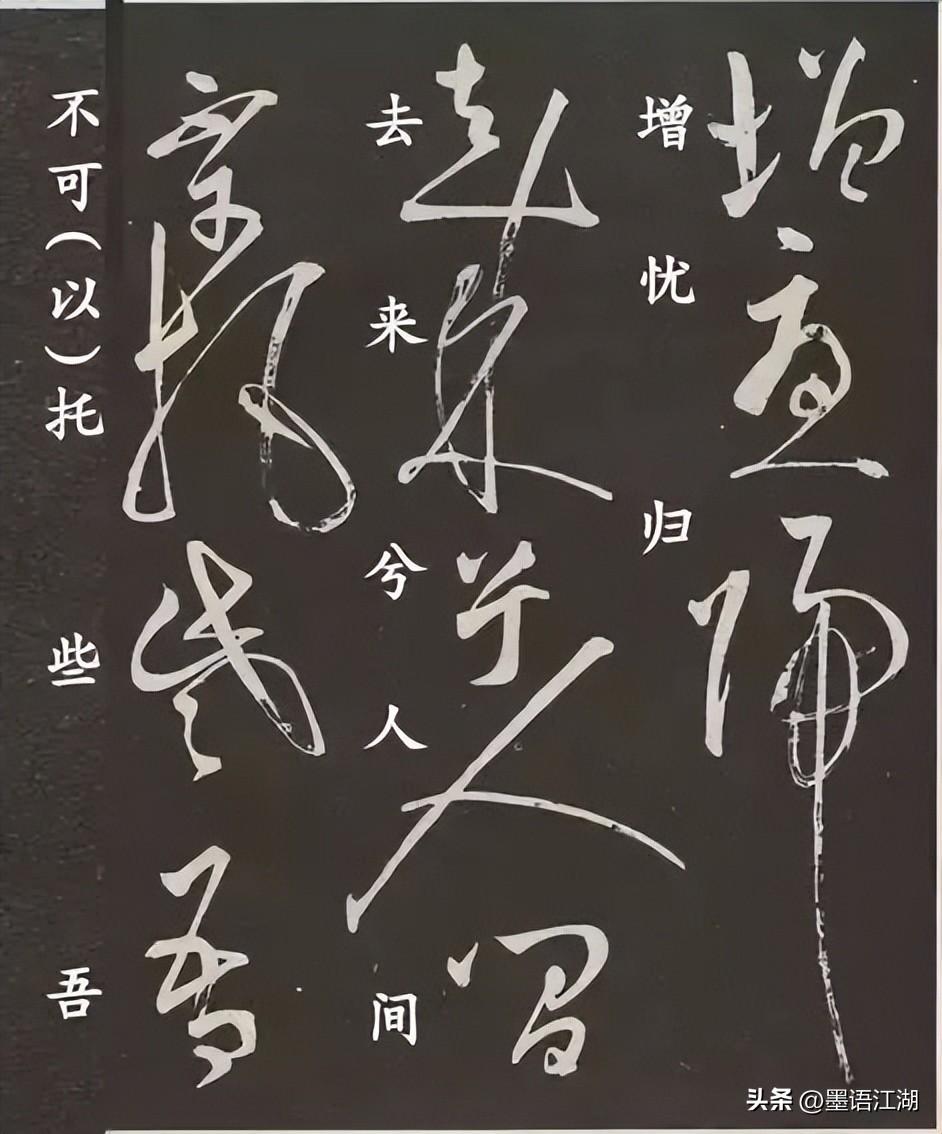 增忧归
去来兮人间
不可（以）托些吾
头条 @墨语江湖